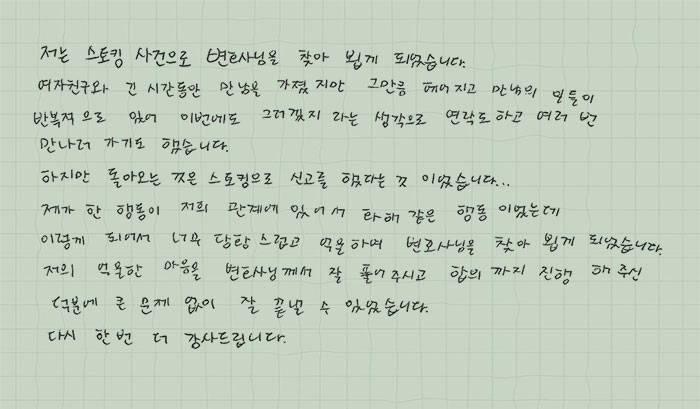 저는 스토킹 사건으로 변호사님을 찾아 뵙게 되었습니다.
여자친구와 긴 시간동안 만남을 가졌지만 그만큼 헤어지고 만남의 일들이
반복적으로 있어 이번에도 그러겠지 라는 생각으로 연락도하고 여러 번
만나러 가기도 했습니다.
하지만 돌아오는 것은 스토킹으로 신고를 했다는 것 이었습니다...
제가 한 행동이 저희 관계에 있어서 화해 같은 행동 이었는데
이렇게 되어서 너무 당황 스럽고 억울하여 변호사님을 찾아 뵙게 되었습니다.
저의 억울한 마음을 변호사님께서 잘 풀어주시고 합의까지 진행 해주신
덕분에 큰 문제 없이 잘 끝낼 수 있었습니다.
다시 한번 더 감사드립니다.